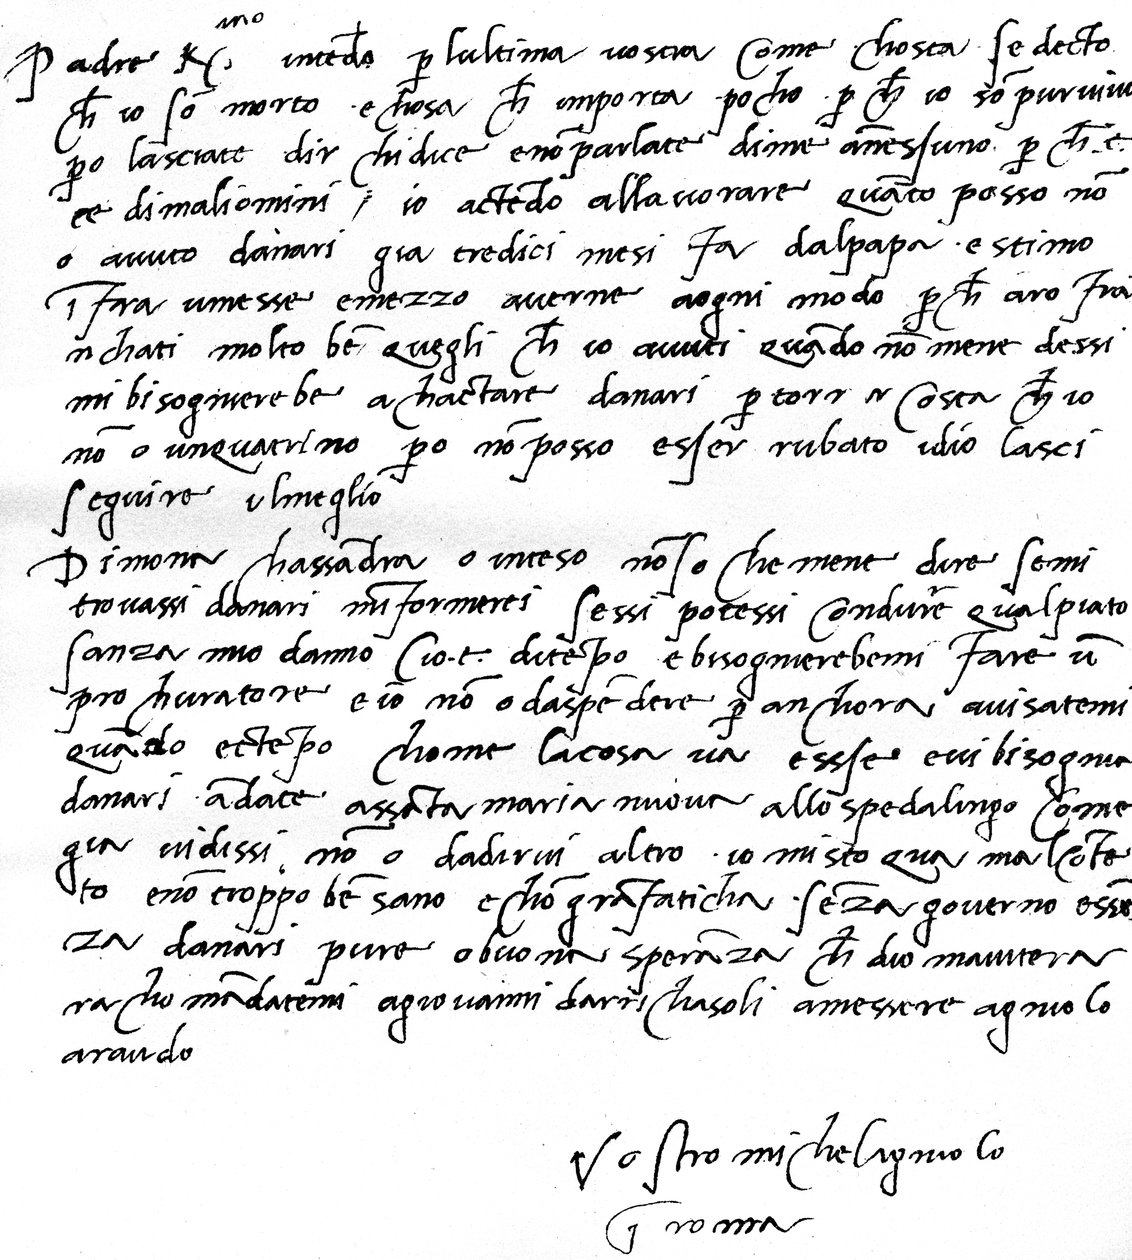 Padre K(ar)mo intēdo p lultima vostra Come chosta se decto
ch̄ io sō morto e chosa ch̄ importa pocho p ch̄ io sō pur vivo
po lasciate dir chi dice e nō parlate di me a nessuno p ch̄ e
ce di mali omini io actēdo allavorare quāto posso nō
o avuto danari gia tredici mesi fa dal papa e stimo
ī fra u mese e mezzo averne a ogni modo p ch̄ aro fra
nchati molto bē quegli ch̄ io avuti quādo nō me ne dessi
mi bisogniere be achactare danari p torr Costa ch̄ io
nō o un quatrino po nō posso esser rubato idio lasci
seguire il meglio
Di mona chassādra o inteso nō so che me ne dire se mi
trovassi danari m īformerei se ssi potessi Condure qua l piato
sanza mio danno Cio e di tēpo e bisognierebemi fare ū
prochuratore e io nō o da spēdere p anchora avisatemi
quādo e c tēpo chome la cosa va esse e vi bisognia
danari ādate a ssāta maria nuova allo spedalingo Come
gia vi dissi nō o da dirvi altro io mi sto qua mal Cōte
to e nō troppo bē sano e chō grā faticha sēza governo e ssē
za danari pure o buona sperāza ch̄ dio m aiutera
rachomādatemi a giovanni da richasoli a messere agniolo
araudo
Vostro michelagniolo
ī roma